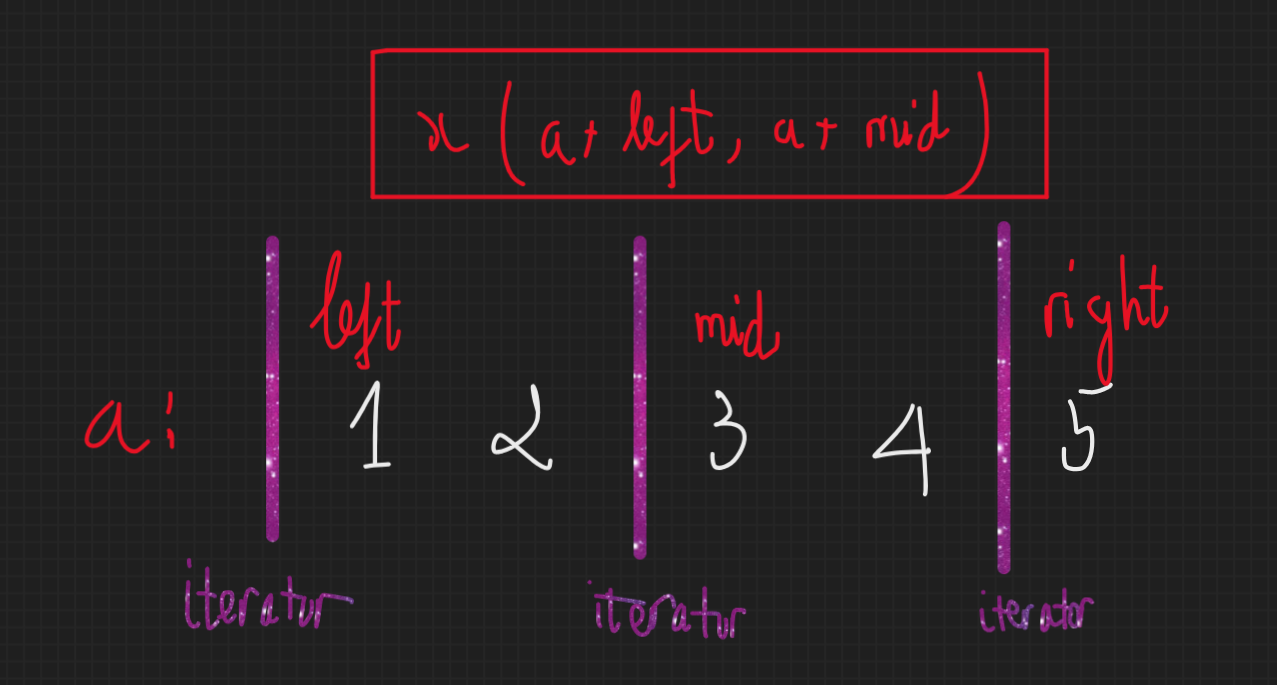 x (a + left, a + mid)
left mid right
a: 1 2 3 4 5
iterator iterator iterator